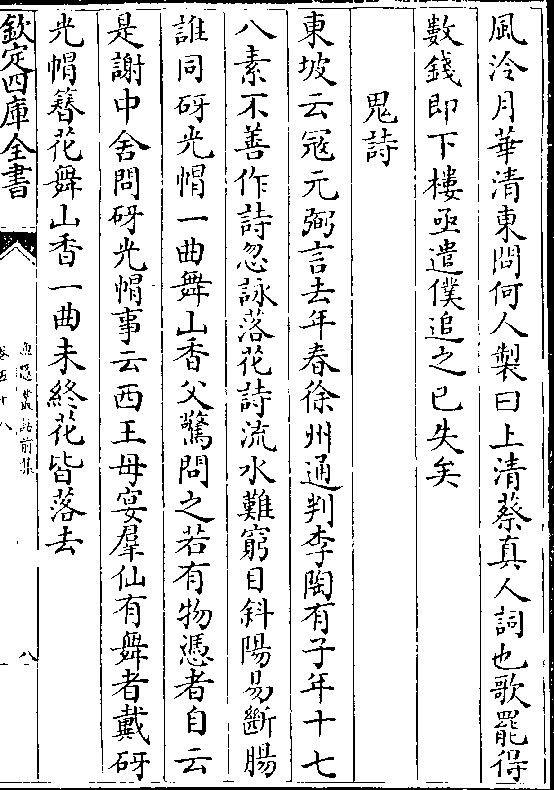 風泠月華清東問何人製曰上清蔡真人詞也歌罷得
數錢即下樓亟遣僕追之已失矣
鬼詩
東坡云冦元弼言去年春徐州通判李陶有子年十七
八素不善作詩忽詠落花詩流水難窮目斜陽易斷腸
誰同砑光帽一曲舞山香父驚問之若有物憑者自云
是謝中舍問砑光帽事云西王母宴羣仙有舞者戴砑
光帽簪花舞山香一曲未終花皆落去
欽定四庫全書
漁隱叢話前集
卷五十八
八